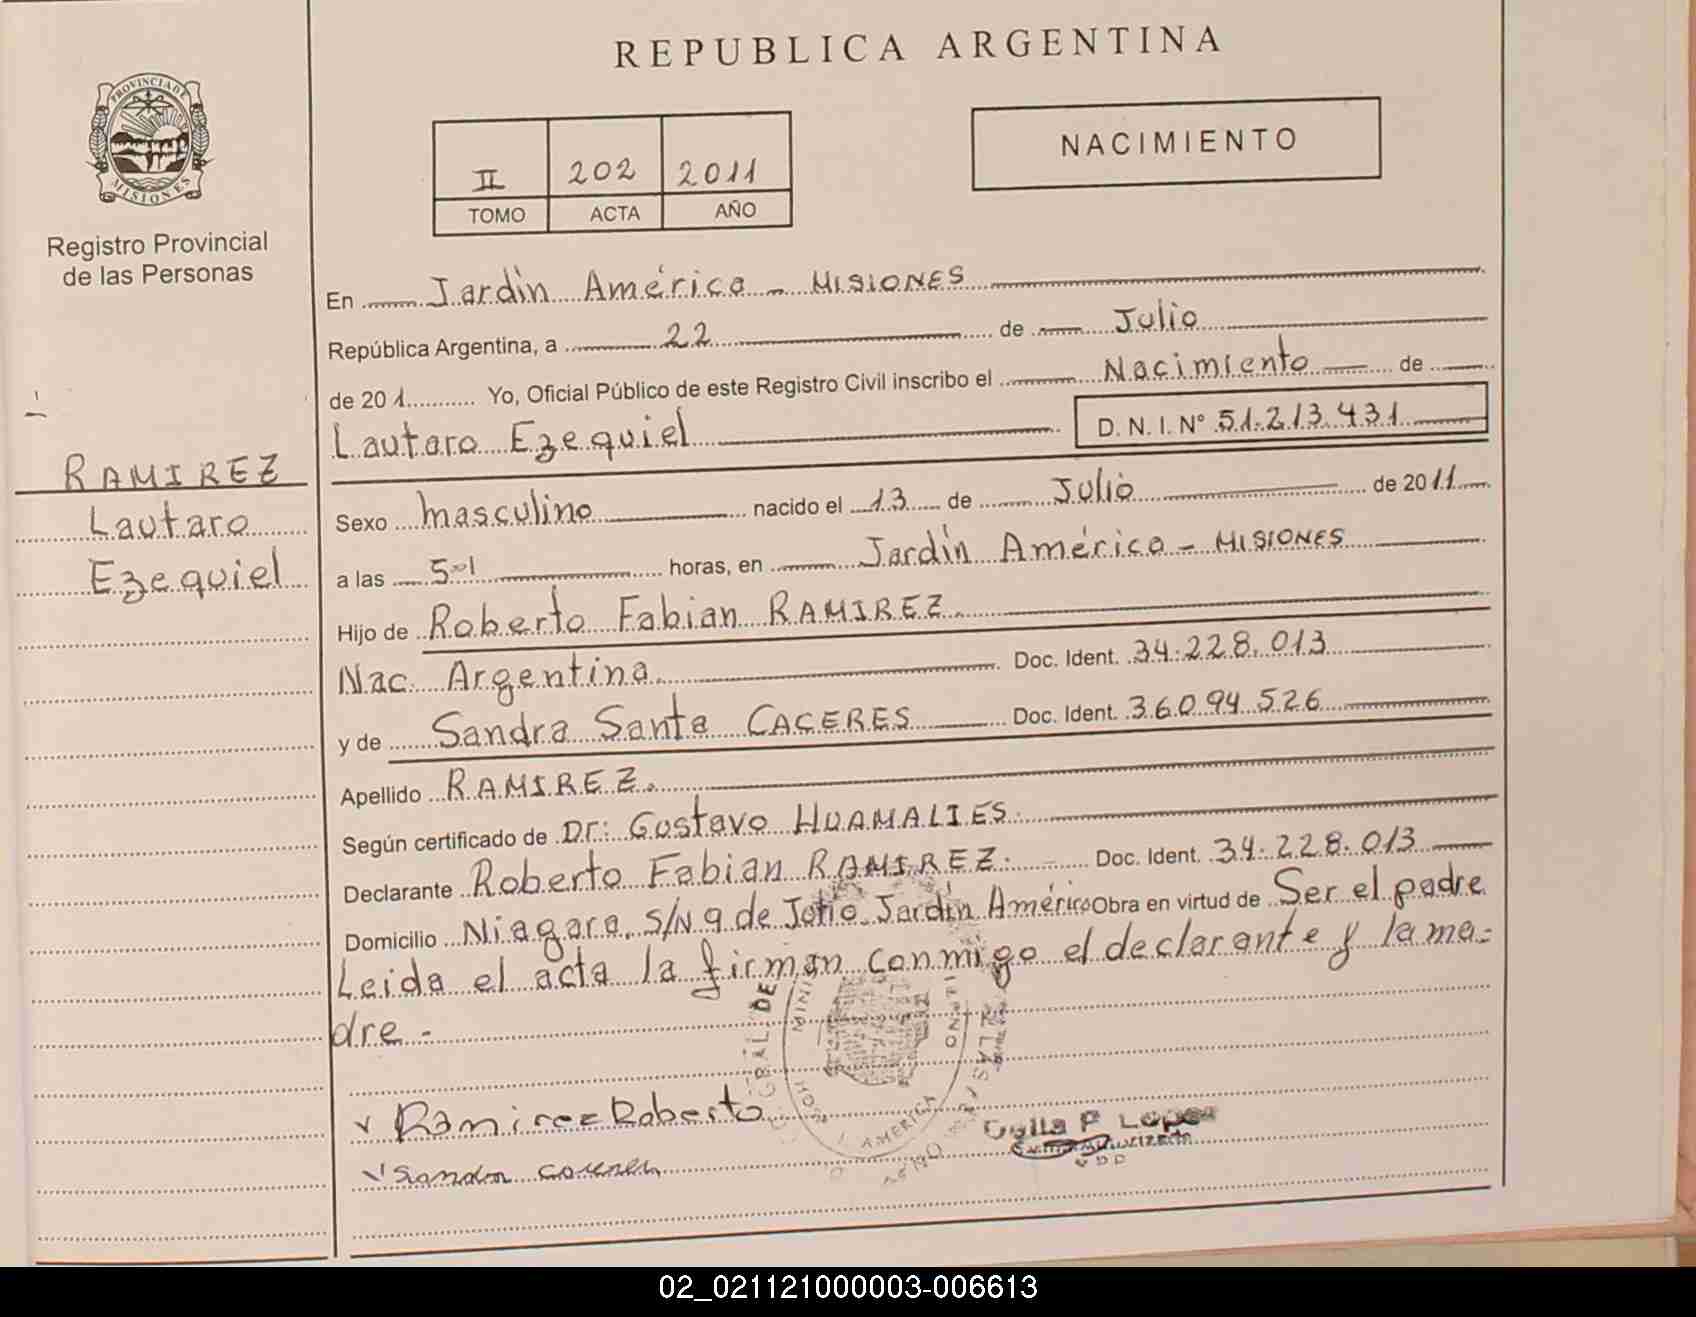 REPUBLICA ARGENTINA
PROVINCIA DE
MISIONES
Registro Provincial
de las Personas
II 202 2011
TOMO ACTA AÑO
NACIMIENTO
En Jardín América - MISIONES
República Argentina, a 22 de Julio
de 201 1 Yo, Oficial Público de este Registro Civil inscribo el Nacimiento de
Lautaro Ezequiel D. N. I. Nº 51.213.431
RAMIREZ
Lautaro
Ezequiel
Sexo masculino nacido el 13 de Julio de 2011
a las horas, en Jardín América - MISIONES
Hijo de Roberto Fabian RAMIREZ.
Nac. Argentina. Doc. Ident. 34.228.013
y de Sandra Santa CACERES Doc. Ident. 36.094.526
Apellido RAMIREZ.
Según certificado de Dr: Gustavo HUAMALIES.
Declarante Roberto Fabian RAMIREZ. Doc. Ident. 34.228.013
Domicilio Niagara, S/N 9 de Julio Jardín América Obra en virtud de Ser el padre
Leida el acta la firman conmigo el declarante y la ma-
dre.-
Ramirez Roberto
AMERICA
Lopez
02_021121000003-006613